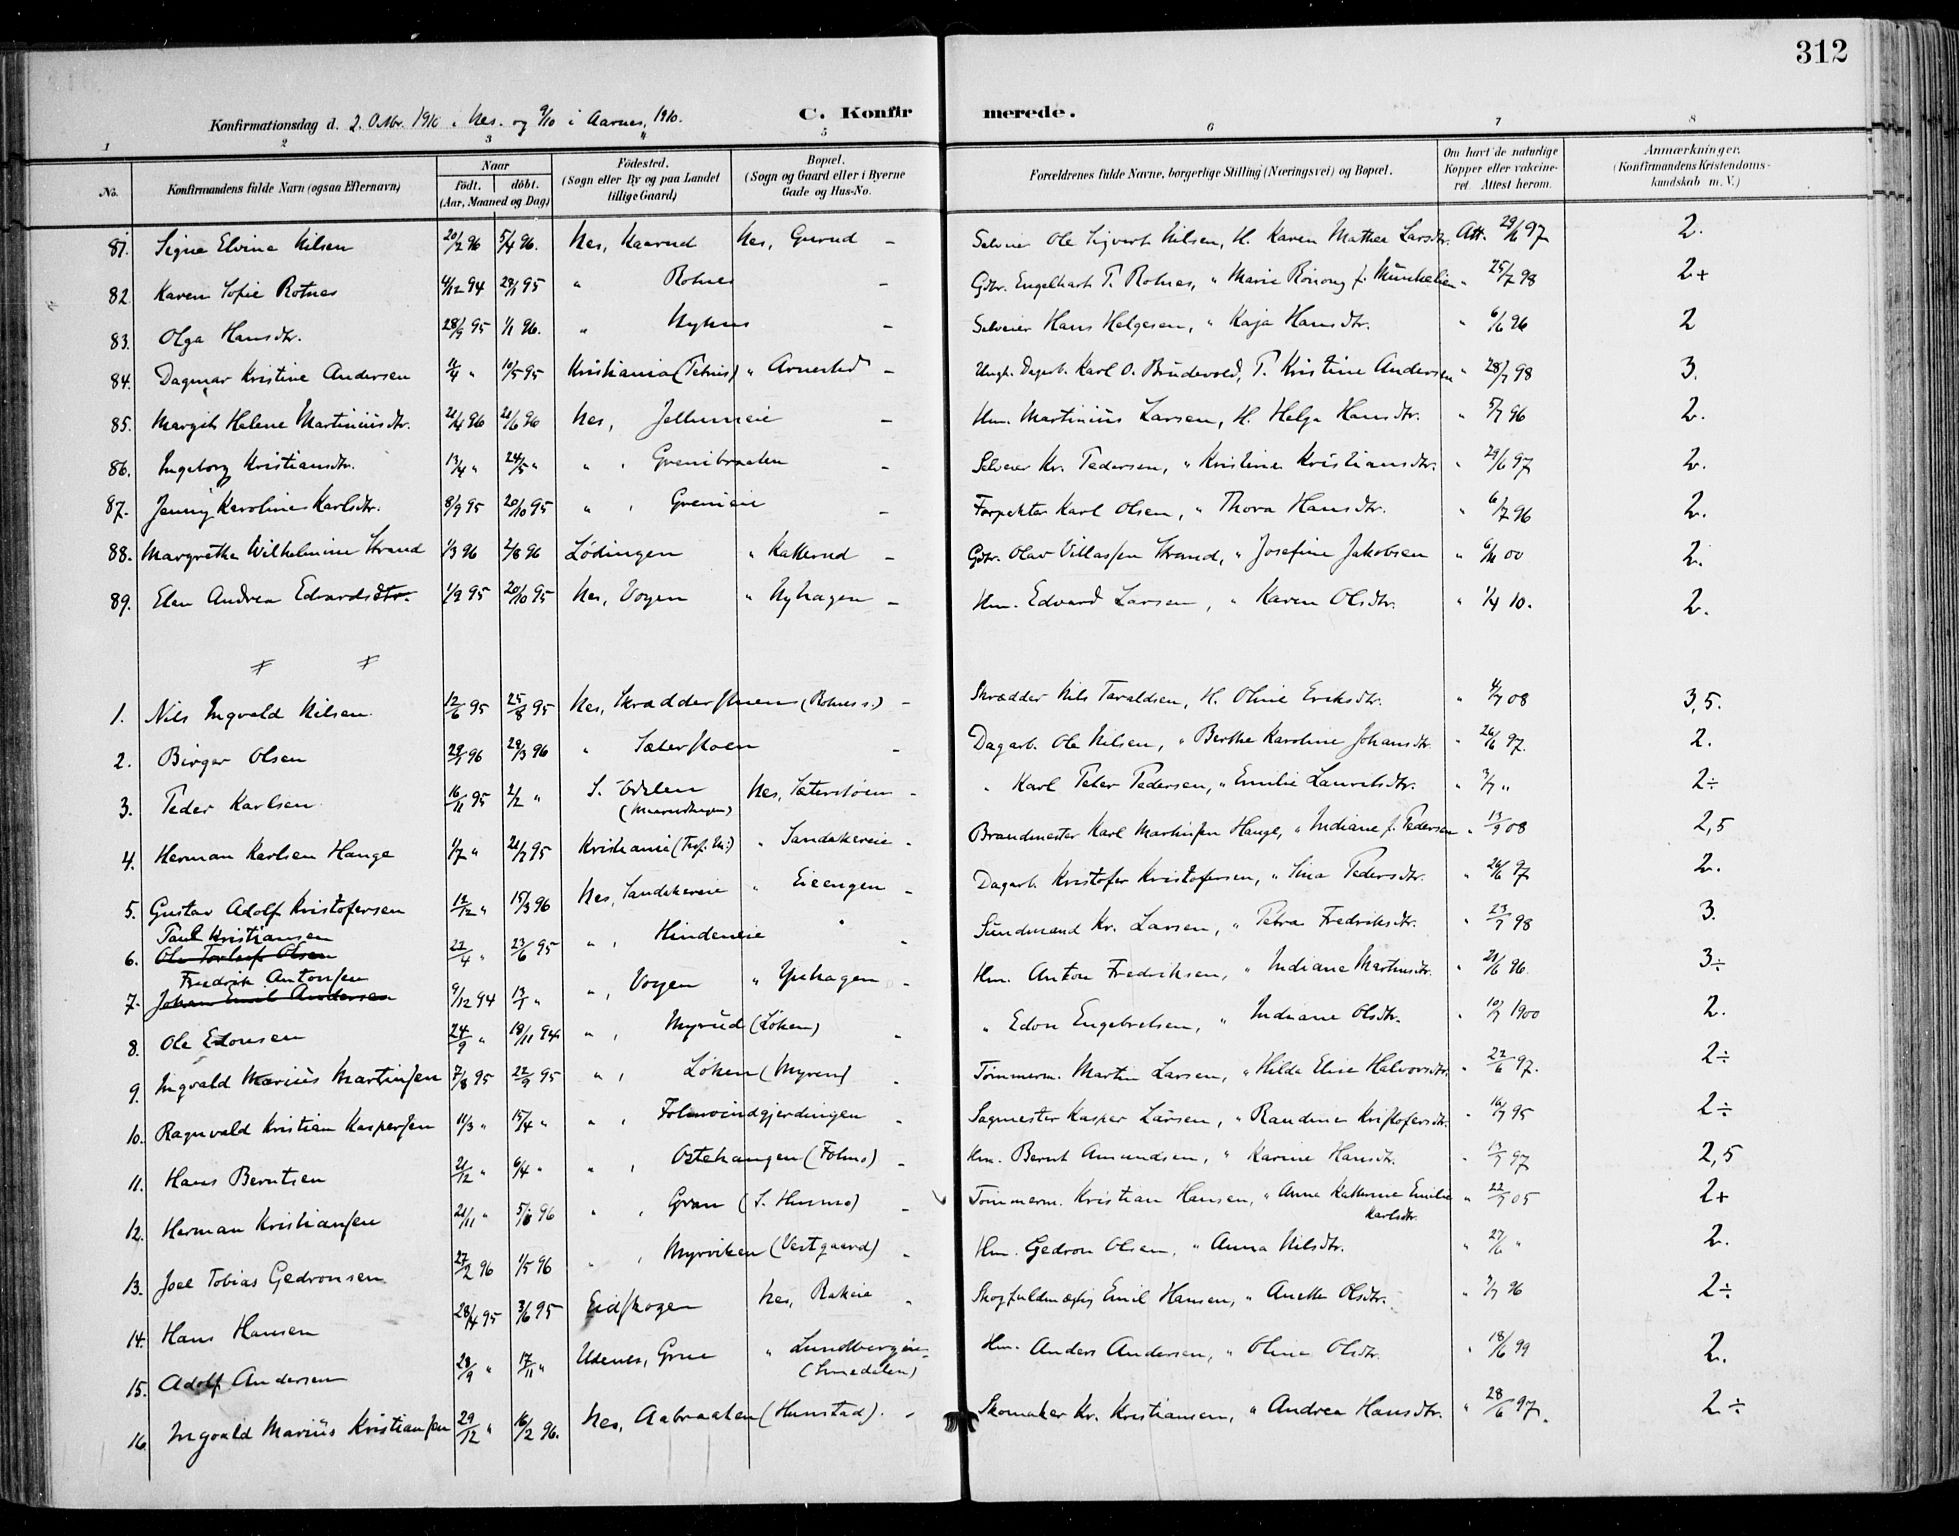 312
Konfirmationsdag d. 2. Oktbr. 1910 i Nes. og 9/10 i Aarnes, 1910. C. Konfirmerede.
1 2 3 4 5 6 7 8
No. Konfirmandens fulde Navn (ogsaa Efternavn) Naar født. døbt. (Aar, Maaned og Dag) Fødested. (Sogn eller By og paa Landet tillige Gaard) Bopæl. (Sogn og Gaard eller i Byerne Gade og Hus-No. Forældrenes fulde Navne, borgerlige Stilling (Næringsvei) og Bopæl. Om havt de naturlige Kopper eller vakcineret. Attest herom. Anmærkninger. (Konfirmandens Kristendomskundskab m. V.)
81. Signe Elvine Nilsen 20/2 96 5/4 96. Nes, Kaarud Nes, Gurud – Selveier Ole Sigvart Nilsen, H. Karen Mathea Larsdtr. Att. 29/6 97 2.
82. Karen Sofie Rotnes 4/12 94 29/1 95 " Rotnes – Gbr. Engelhart T. Rotnes, " Marie Rønaug f. Munkelien " 25/7 98 2+
83. Olga Hansdtr. 28/9 95 1/1 96. " Nyhus – Selveier Hans Helgesen, " Kaja Hansdtr. " 6/6 96 2
84. Dagmar Kristine Andersen 2/4 " 10/5 95 Kristiania " Arnestad – Ungk. Dagarb. Karl O. Brudevold, P. Kristine Andersen " 28/7 98 3.
85. Margit Helene Martiniusdtr. 21/4 96 21/6 96 Nes, Jellumeie – Hm. Martinius Larsen, H. Helga Hansdtr. " 5/7 96 2.
86. Ingeborg Kristiansdtr. 13/4 " 24/5 " " , Grenibraaten Selveier Kr. Pedersen, " Kristine Kristiansdtr. " 29/6 97 2.
87. Jenny Karoline Karlsdtr. 8/9 95 20/10 95 " , Grenieie – Forpakter Karl Olsen, " Thora Hansdtr. " 6/7 96 2.
88. Margrethe Wilhelmine Strand 1/3 96 2/8 96 Lødingen " Katterud – Gbr. Olav Villassen Strand, " Josefine Jakobsen 00 2.
89. Elen Andrea Edvardsdtr. 1/9 95 20/10 95 Nes, Voyen " Nyhagen – Hm. Edvard Larsen, " Karen Olsdtr. " 1/4 10. 2.
1. Nils Ingvald Nilsen 12/6 95 25/8 95 Nes, Skrædderstuen (Rotnes s.) – Skrædder Nils Taraldsen, H. Oline Eriksdtr. " 4/7 08 3,5.
2. Birger Olsen 29/1 96 29/3 96 " Sæterstoen – Dagarb. Ole Nilsen, " Berthe Karoline Johansdtr. " 26/6 97. 2.
3. Peder Karlsen 16/11 95 2/2 " S. Odalen Nes, Sæterstoen – " Karl Peter Pedersen, " Emilie Lauritsdtr. " 3/7 " 2÷
4. Herman Karlsen Hauge 1/7 " 21/7 95 Kristiania " Sandakereie – Brandmester Karl Martinsen Hauge, " Indiane f. Pedersen " 13/9 08 2,5
5. Gustav Adolf Kristofersen 12/12 " 15/3 96 Nes, Sandakereie " Eieengen – Dagarb. Kristofer Kristofersen, " Lina Pedersdtr. " 26/6 97 2.
Paul Kristiansen
6. Ole Torleif Olsen 22/4 " 23/6 95 " , Hindeneie " – Sundmand Kr. Larsen, " Petra Fredriksdtr. " 23/7 98 3.
Fredrik Antonsen
7. Johan Emil Andersen 9/12 94 13/1 " " , Voyen " Ynhagen – Hm. Anton Fredriksen, " Indiane Martinsdtr. " 21/6 96. 3÷
8. Ole Edonsen 24/9 " 18/11 94 " , Myrud (Løken) – " Edon Engebretsen, " Indiane Olsdtr. " 10/7 1900 2.
9. Ingvald Marius Martinsen 7/8 95 22/9 95 " , Løken (Myren) – Tømmerm. Martin Larsen, " Hilda Elise Halvorsdtr. " 22/6 97. 2÷
10. Ragnvald Kristian Kaspersen 11/3 " 15/4 " " , Folmoindgjerdingen – Sagmester Kasper Larsen, " Randine Kristofersdtr. " 16/7 95 2÷
11. Hans Berntsen 21/12 " 6/4 " " , Ostehaugen (Folmo) – Hm. Bernt Amundsen, " Karine Hansdtr. " 13/7 97 2,5
12. Herman Kristiansen 21/11 " 5/1 96 " , Gran (S. Henmo) – Tømmerm. Kristian Hansen, " Anne Katherine Emilie Karlsdtr. " 22/7 05 2+
13. Joel Tobias Gedronsen 27/2 96 1/5 96 " , Myrviken (Vestgaard) – Hm. Gedron Olsen, " Anna Nilsdtr. " 27/6 " 2.
14. Hans Hansen 28/4 95 3/6 95 Eidskogen Nes, Rakeie " Skogfuldmægtig Emil Hansen, " Anette Olsdtr. " 3/7 96 2÷
15. Adolf Andersen 28/9 " 17/11 " Udenes, Grue " Lundbergeie (Smedalen) Hm. Anders Andersen, " Oline Olsdtr. " 18/6 99 2.
16. Ingvald Marius Kristiansen 29/12 " 16/2 96. Nes, Aabraaten (Hunstad). – Skomaker Kr. Kristiansen, " Andrea Hansdtr. " 28/6 97. 2÷